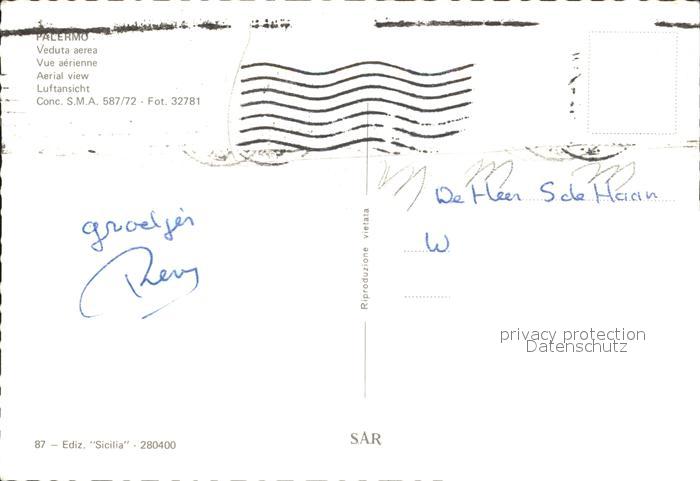 PALERMO
Veduta aerea
Vue aérienne
Aerial view
Luftansicht
Conc. S.M.A. 587/72 - Fot. 32781
De Heer S de Haan
groetjes
W
Riproduzione vietata
privacy protection
Datenschutz
87 — Ediz. "Sicilia" - 280400
SAR